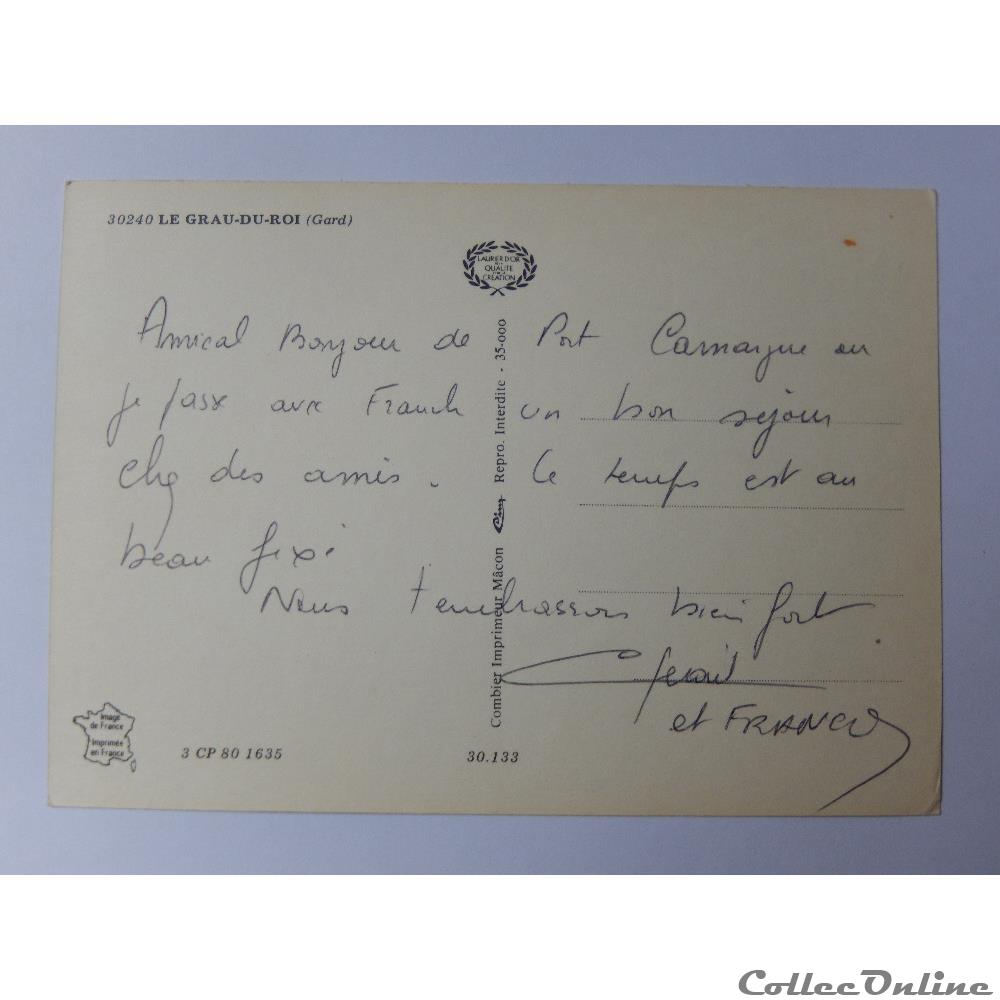 30240 LE GRAU-DU-ROI (Gard)
LAURIER D'OR
DE LA
QUALITE
CREATION
Amical Bonjour de Port Camargue ou
je passe avec Franck un bon séjour
chez des amis. Le temps est au
beau fixe
Nous t'embrassons bien fort
et FRANCK
Combier Imprimeur Mâcon Cim Repro. Interdite - 35-000
Image
de France
Imprimée
en France
3 CP 80 1635
30.133
CollecOnline